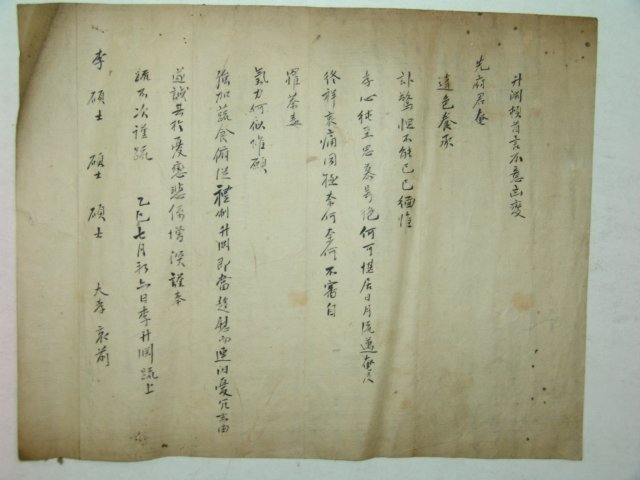 升淵頓首言不意凶變
先府君奄
違色養承
訃驚怛不能已已緬惟
孝心純至思慕号絶何可堪居日月流邁奄及
終祥哀痛罔極奈何奈何不審自
罹荼毒
氣力何似惟願
强加蔬食俯從禮制升淵即當趨慰而連有憂冗末由
遂誠其於憂戀悲係增深謹奉
疏不次謹疏 乙巳七月初六日李升淵疏上
李碩士 碩士 碩士 大孝哀前